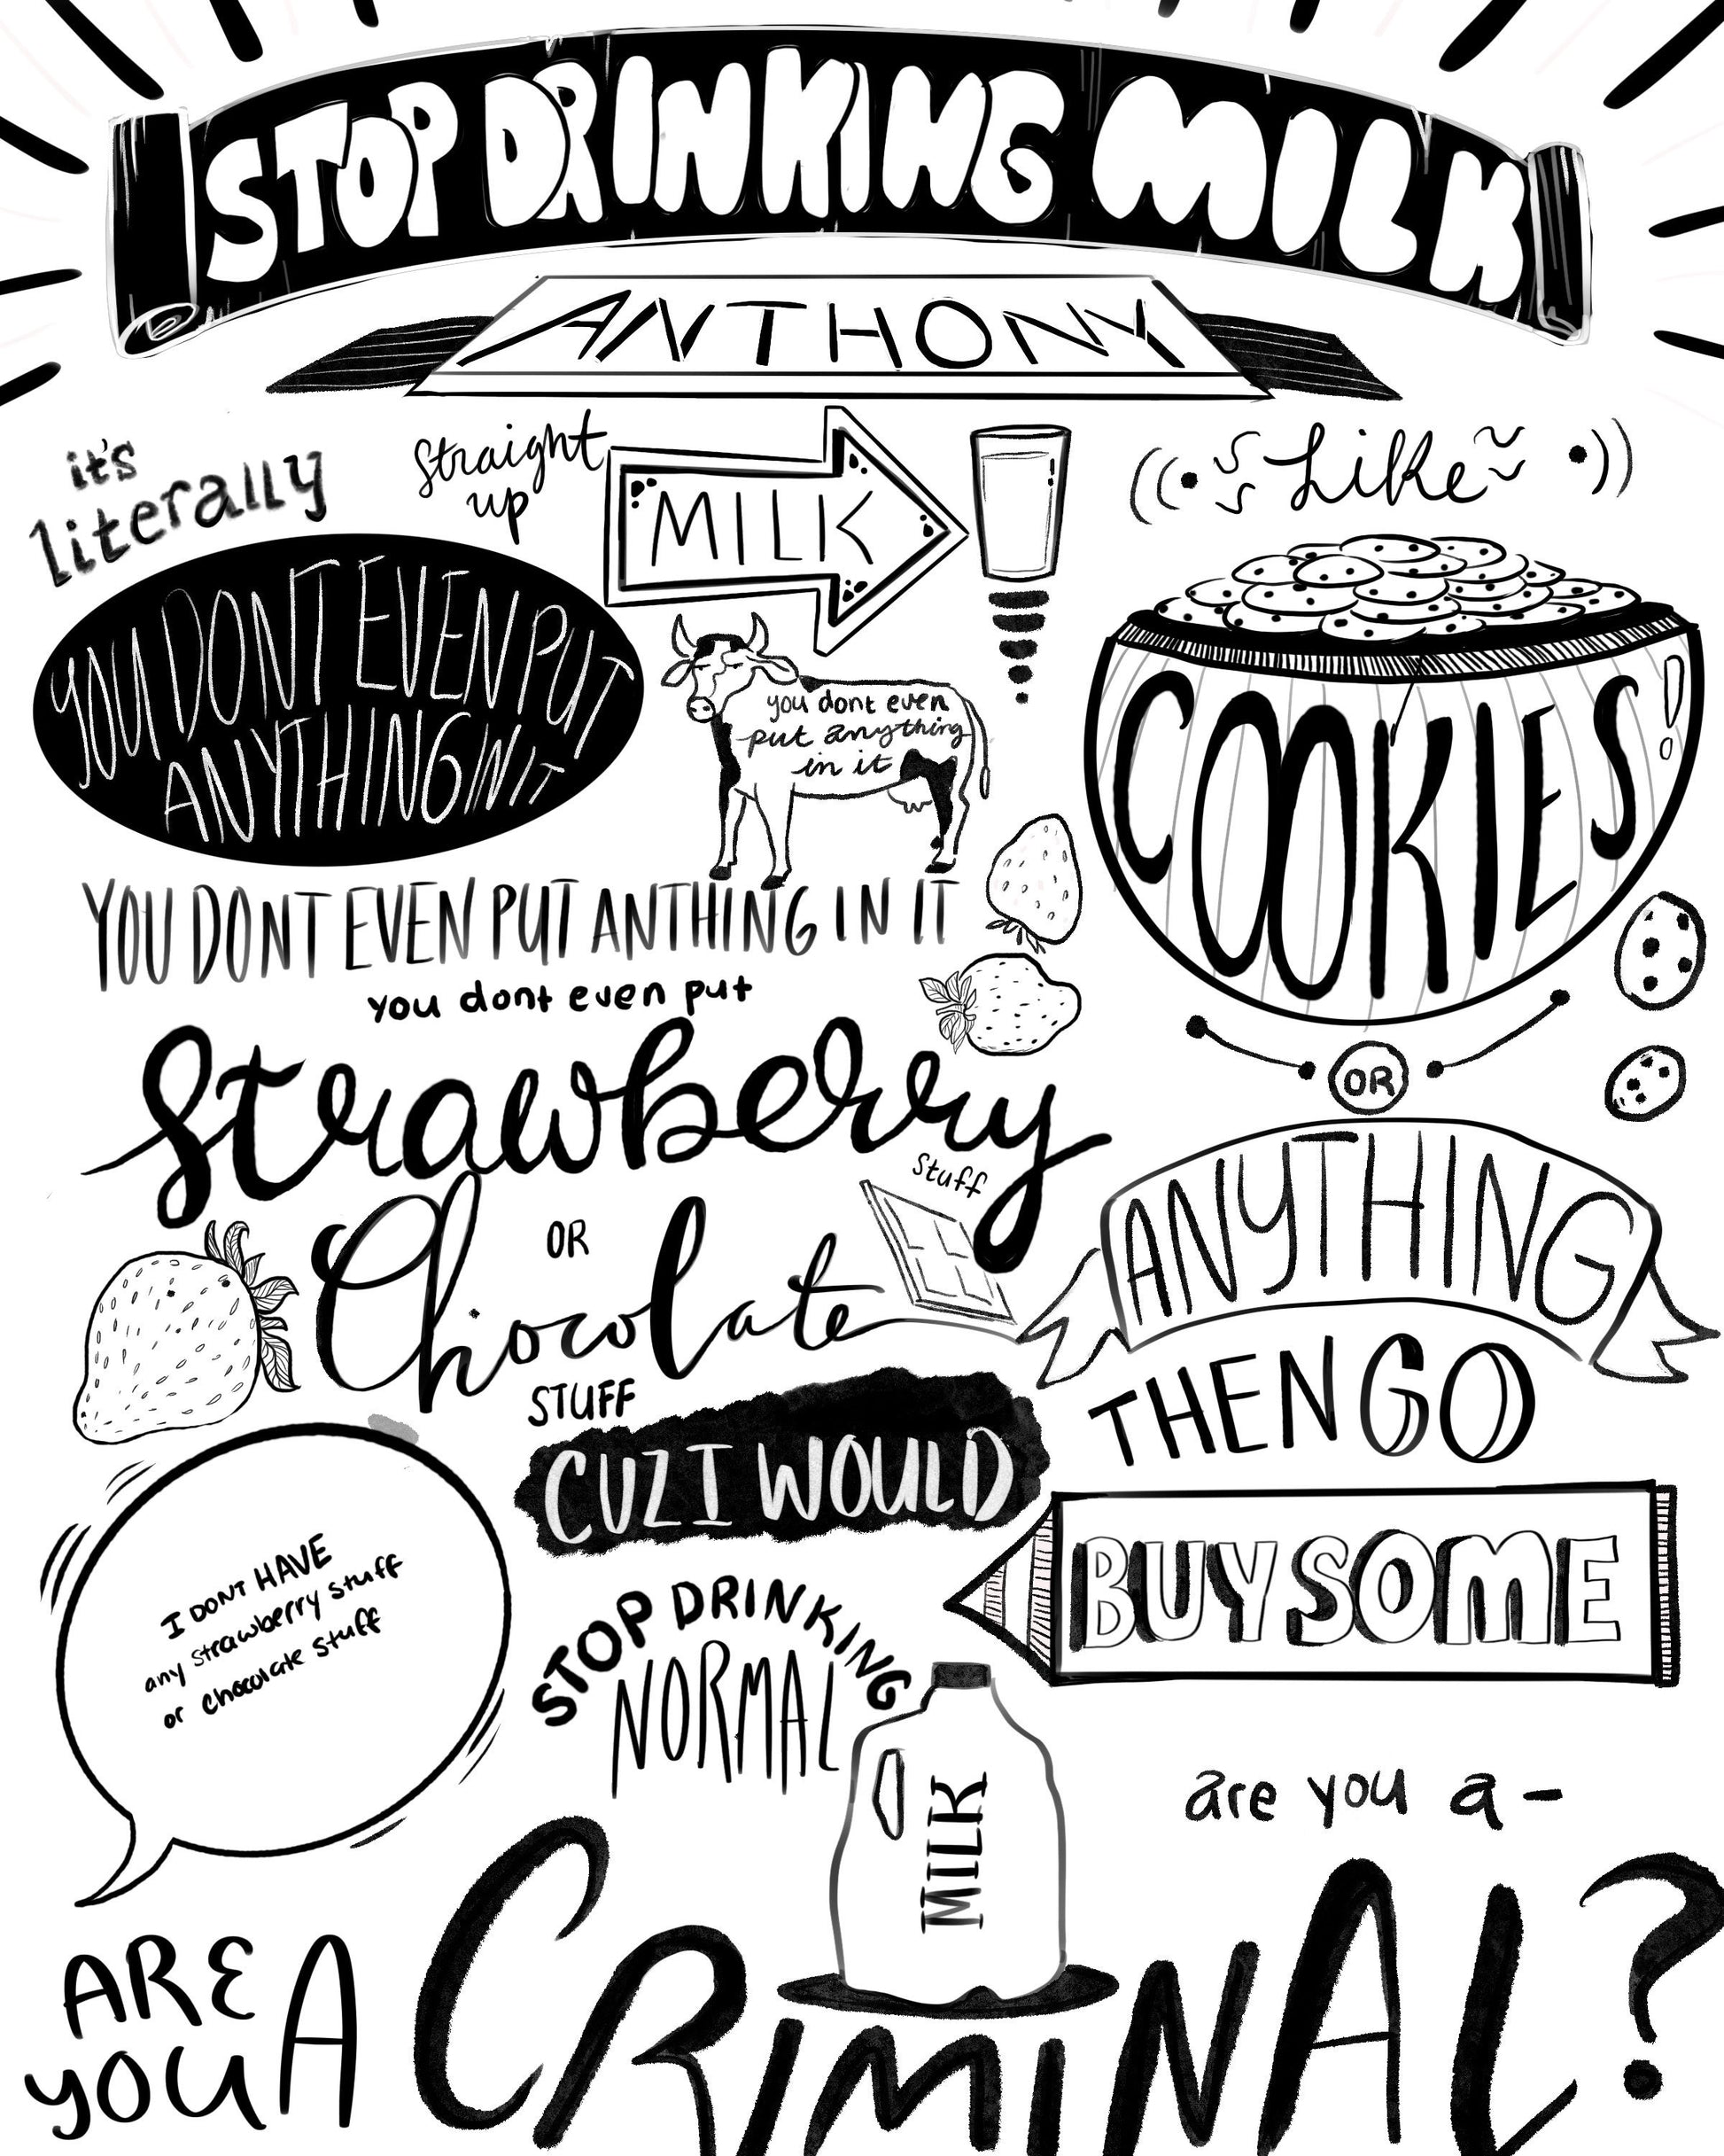 STOP DRINKING MILK
ANTHONY
it's
literally
Straight
up
MILK
Like
YOU DONT EVEN PUT
ANYTHING IN IT
you dont even
put anything
in it
COOKIES!
YOU DONT EVEN PUT ANTHING IN IT
you dont even put
Strawberry
stuff
OR
Chocolate
STUFF
OR
ANYTHING
THEN GO
BUY SOME
CUZ I WOULD
I DONT HAVE
any strawberry stuff
or chocolate stuff
STOP DRINKING
NORMAL
MILK
are you a-
ARE
YOU A
CRIMINAL?